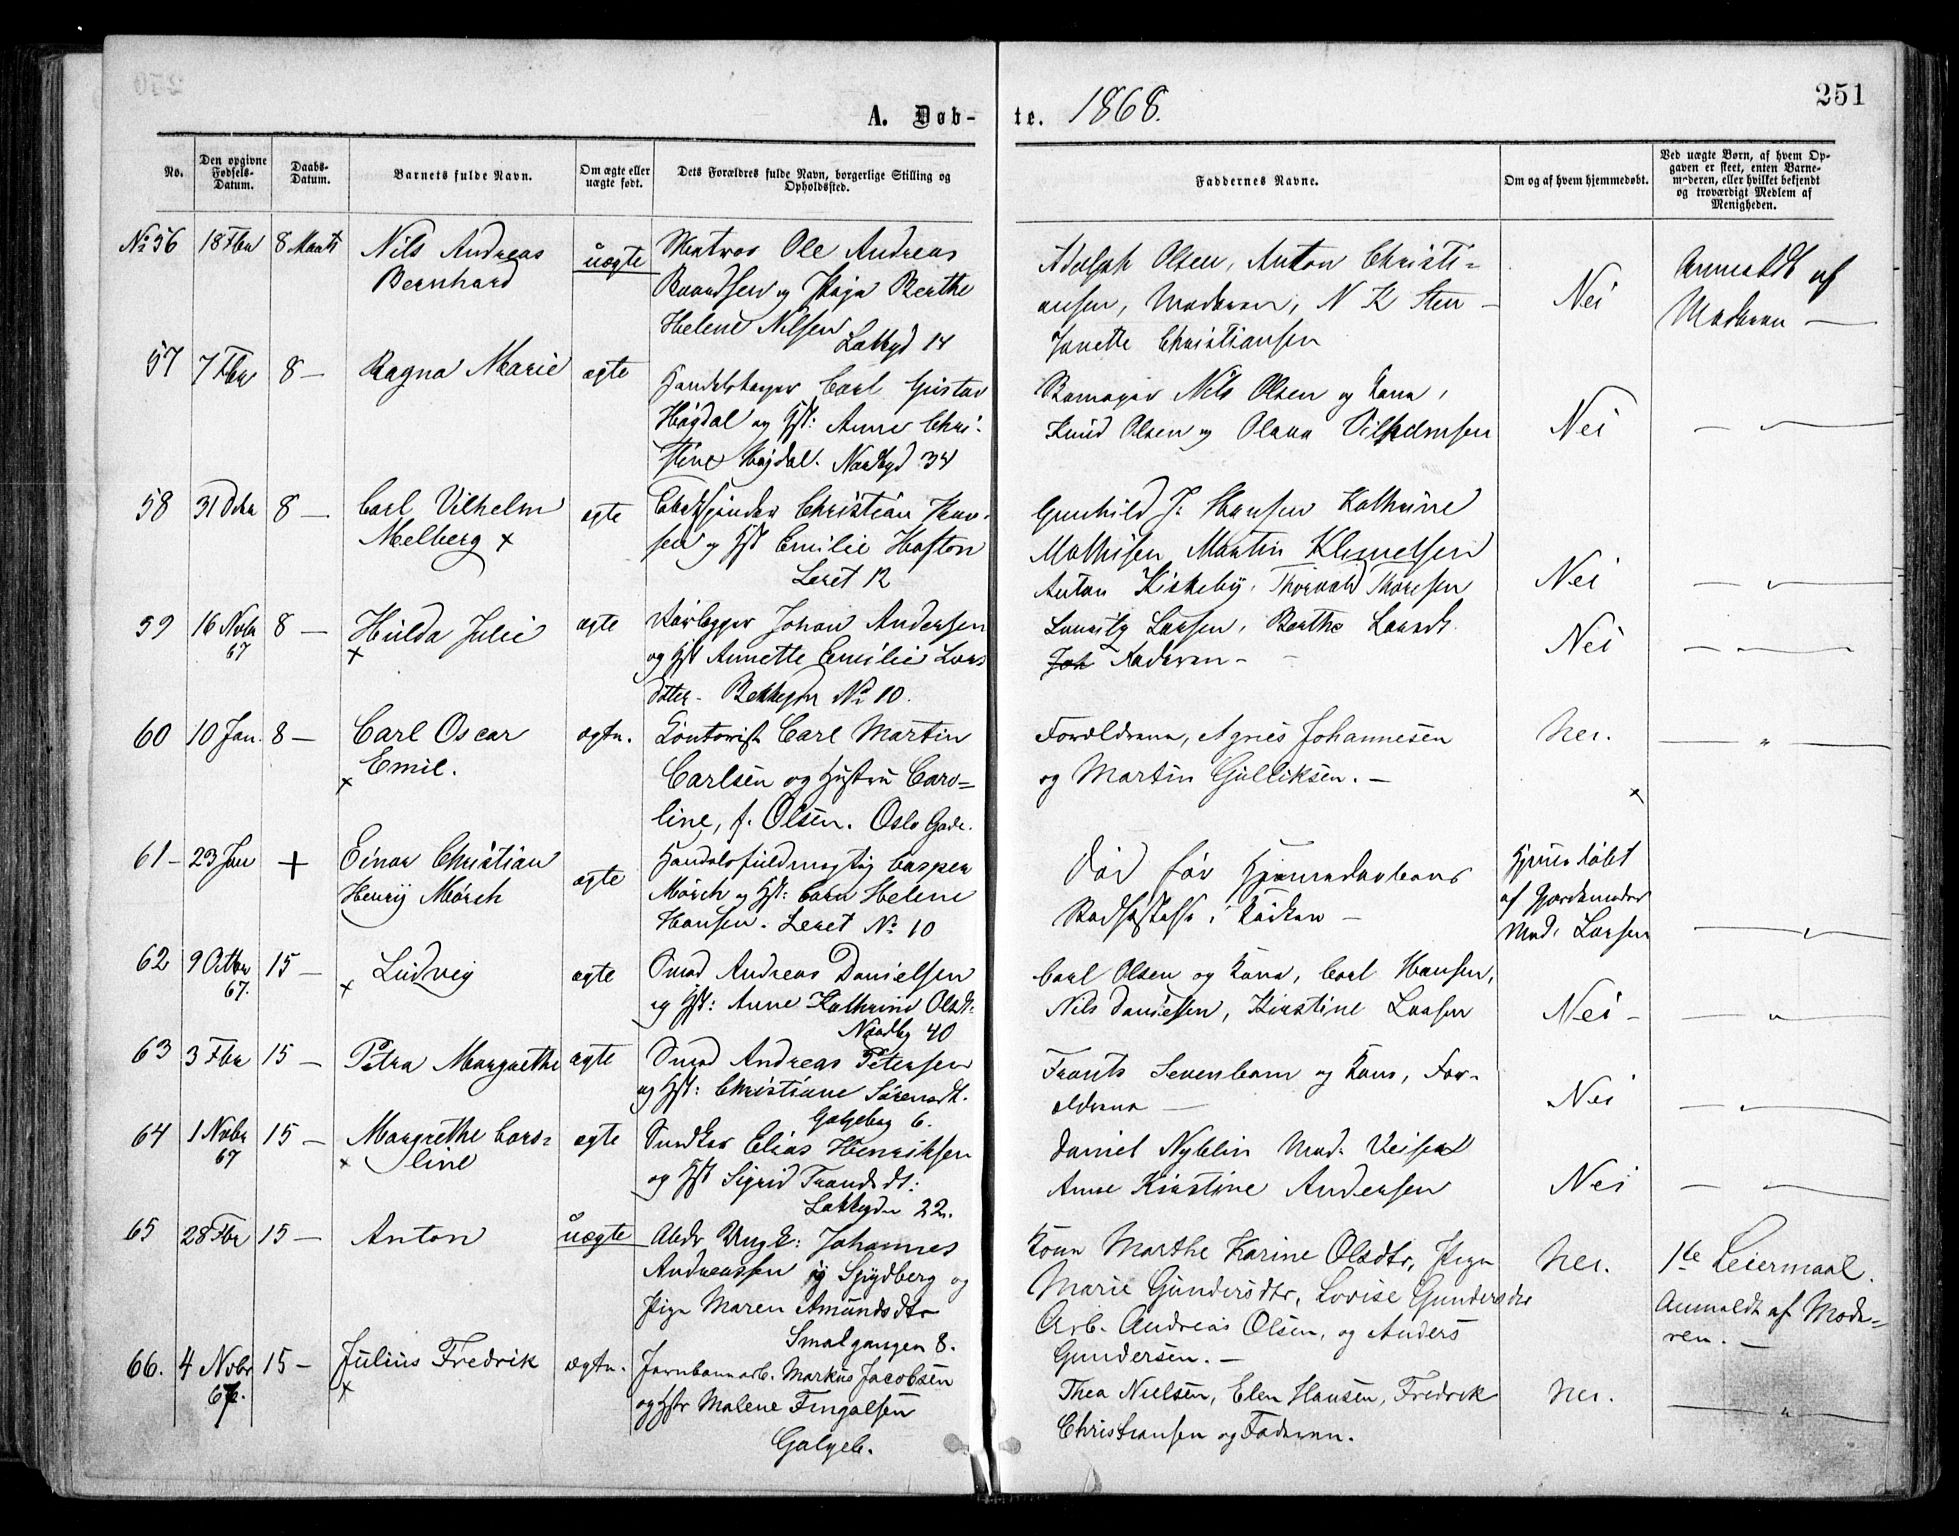 251
A. Døb-
te. 1868.
No.
Den opgivne Fødsels-Datum.
Daabs-Datum.
Barnets fulde Navn.
Om ægte eller uægte født.
Dets Forældres fulde Navn, borgerlige Stilling og Opholdssted.
Faddernes Navne.
Om og af hvem hjemmedøbt.
Ved uægte Børn, af hvem Op-
gaven er skeet, enten Barne-
moderen, eller hvilket bekjendt
og troværdigt Medlem af
Menigheden.
No 56 18 Fbr 8 Marts Nils Andreas
Bernhard
uægte
Matros Ole Andreas
og Pige Berthe
Helene Nilsen
Lakkegd 14
Adolph Olsen, Anton Christi-
ansen, Moderen, N K Sten
Janette Christiansen
Nei
Anmeldt af
Moderen —
57 7 Fbr 8 — Ragna Marie ægte
Carl Gustav
Høgdal og Hst: Anne Chri-
stine Høgdal. Nordbyd 34
Nils Olsen og Kone,
Knud Olsen og Olava Vilhelmsen
Nei
— " —
58 31 Dcbr 8 — Carl Vilhelm
Melberg x
ægte
Christian Han-
sen og Hst Emilie Hafton
Leret 12
Gunhild J. Hansen Kathrine
Mathisen Martin Klemetsen
Anton Kiskeby, Thorvald Thoresen
Nei
— " —
59 16 Nvbr 67 8 — Hulda Julie
x
ægte
Rørlegger Johan Andersen
og Hst Annette Emilie Lars
datter - Bekkegdn No 10.
Larsen, Berthe Larsdt.
Joh Faderen -
Nei
— " —
60 10 Jan. 8 — Carl Oscar
x Emil.
ægte.
Contorist Carl Martin
Carlsen og Hustru Caro-
line, f. Olsen. Oslo Gade.
Forældrene, Agnes Johannesen
og Martin Gulliksen. —
Nei.
x
— " —
61 - 23 Jan + Einar Christian
Henrij Mørch
ægte
Handelsfuldmægtig Casper
Mørch og Hst: Helene
Hansen. Leret No 10
Død før Hjemmedaabens
Stadfæstelse i Kirken —
Hjemmedøbt
af Gjordemoder
Mad. Larsen
— " —
62 9 Octbr 67. 15 — x Ludvig ægte
Smed Andreas Danielsen
og Hst: Anne Kathrine Olsdt:
Nordby 40
Carl Olsen og Kone, Carl Hansen,
Nils Danielsen, Kirstine Larsen
Nei -
— " —
63 3 Fbr 15 — Petra Margrethe ægte
Smed Andreas Petersen
og Hst: Christiane Sørensdt.
Galgebg 6.
Frants Sevenbom og Kone, For-
ældrene —
Nei
— " —
64 1 Nvbr 67 15 — Margrethe Caro-
x line
ægte
Elias Henriksen
og Hst Sigrid Trondsdt:
Lakkegdn 22.
Daniel Nyblin Mad.
Anne Kirstine Andersen
Nei
— " —
65 28 Fbr 15 — Anton uægte
Arbdr Ungk: Johannes
Andreassen og
Pige Maren Amundsdtr
Smalgangen 8.
Kone Marthe Karine Olsdtr, Pige
Marie Gundersdtr, Lovise Gundersdtr
Arb. Andreas Olsen, og Anders
Gundersen. —
Nei.
1ste Leiermaal.
Anmeldt af Mode-
ren. —
66. 4 Nvbr 67. 15 — Julius Fredrik
x
ægte.
Jernbanearb. Markus Jacobsen
og Hstr Malene Fingalsen
Galgeb.
Thea Nielsen, Elen Hansen, Fredrik
Christiansen og Faderen.
Nei.
— " —